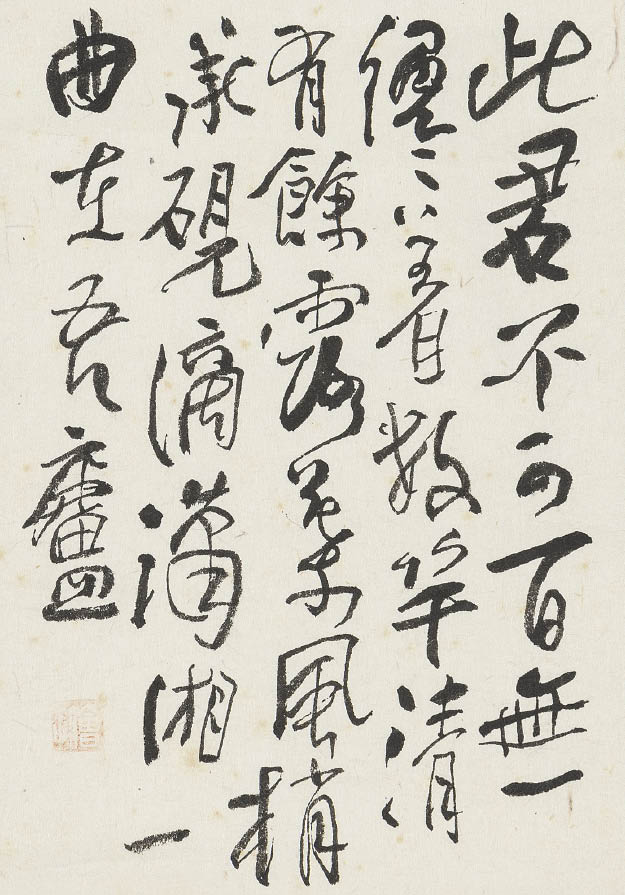 此君不可一日無
纔著數竿清
有餘露葉風梢
承硯滴瀟湘一
曲在吾廬